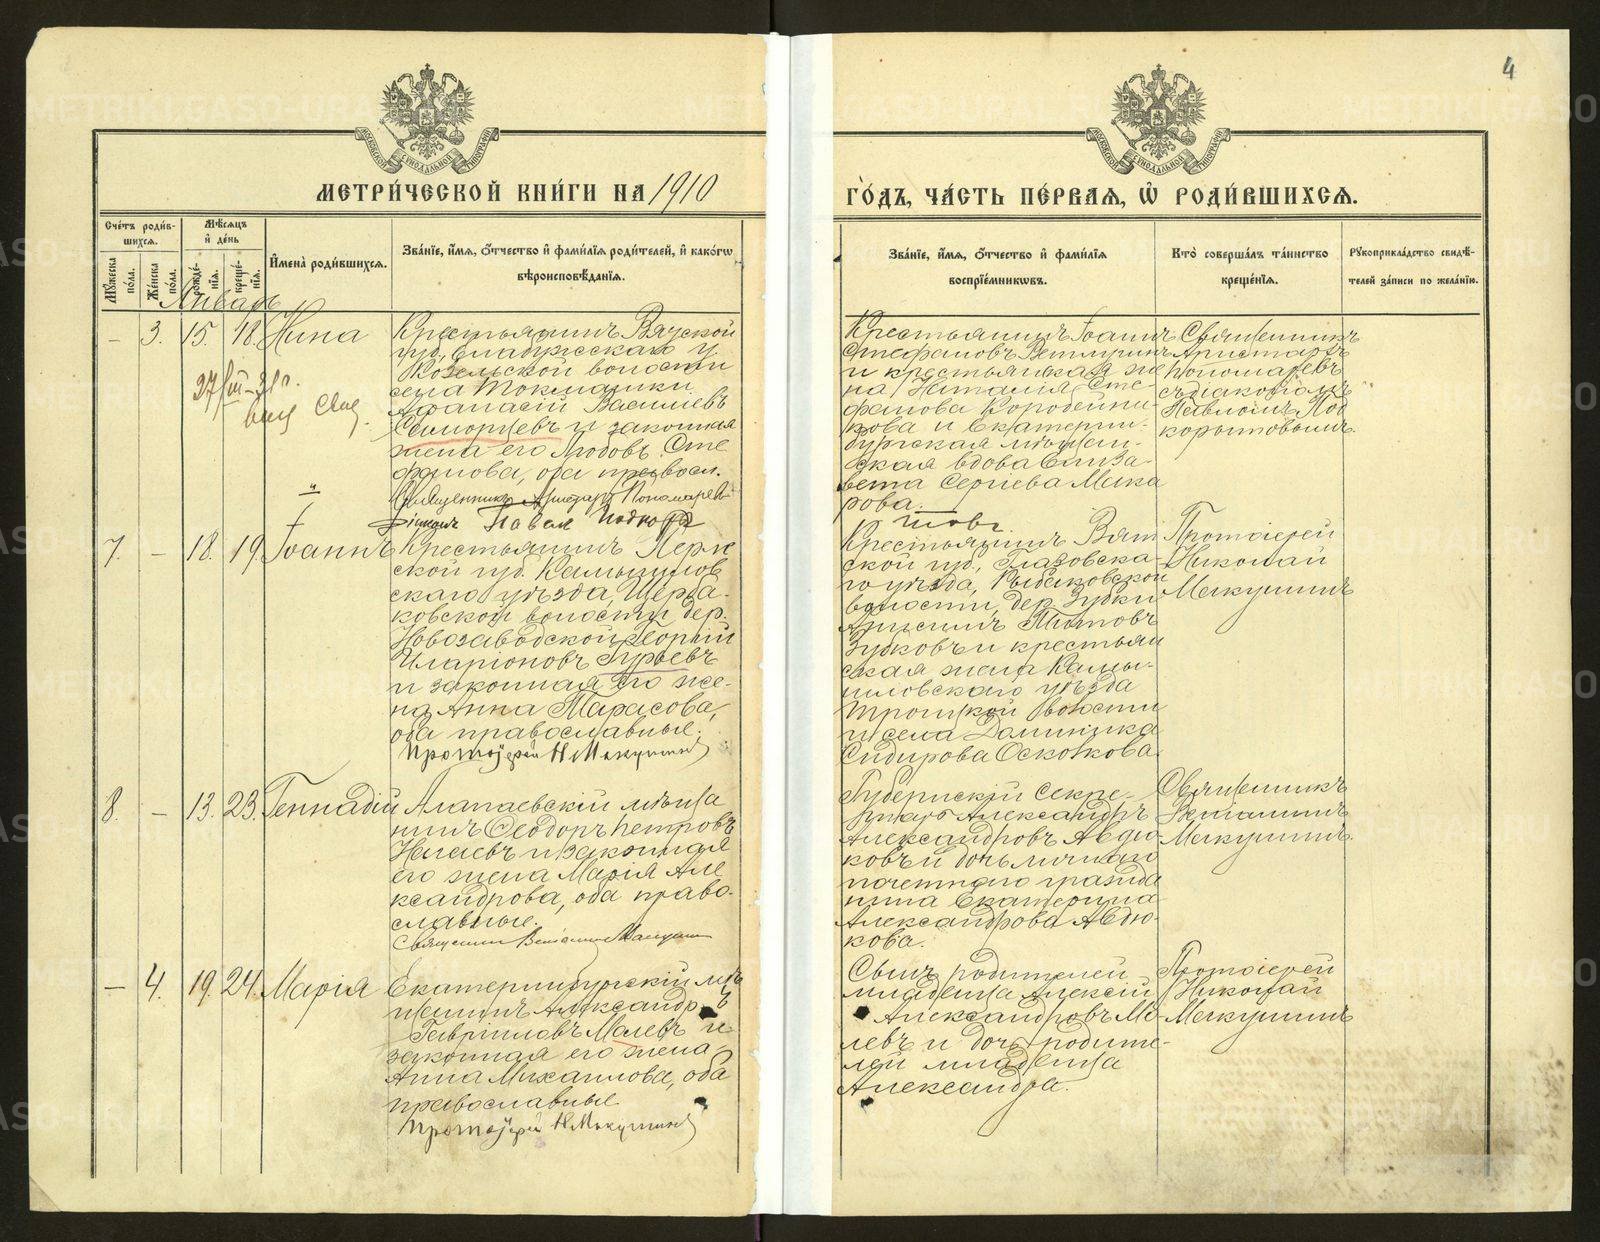 4
МОСКОВСКОЙ СѴНОДАЛЬНОЙ ТИПОГРАФІИ
МОСКОВСКОЙ СѴНОДАЛЬНОЙ ТИПОГРАФІИ
МЕТРИ́ЧЕСКОЙ КНИ́ГИ НА 1910
ГО́ДЪ, ЧА́СТЬ ПЕ́РВАЯ, Ѡ҆ РОДИ́ВШИХСЯ.
Сче́тъ роди́в-
шихся.
Мѣ́сяцъ
и҆ де́нь
Мꙋ́жеска
по́ла.
Же́нска
по́ла.
рожде́-
нїя.
креще́-
нїя.
И҆мена̀ роди́вшихся.
Зва́нїе, и҆́мя, ѻ҆́тчество и҆ фами́лїя роди́телей, и҆ како́гѡ
вѣроисповѣ́данїя.
Зва́нїе, и҆́мя, ѻ҆́тчество и҆ фами́лїя
воспрїе́мникѡвъ.
Кто̀ соверша́лъ та́инство
креще́нїя.
Рꙋкоприкла́дство свидѣ́-
телей за́писи по жела́нїю.
Январь
– 3. 15. 18. Нина
Крестьянинъ Вятской
губ., Елабужскаго у.
Козельской волости
села Токмашки
Афанасій Васильевъ
Саморцевъ и законная
жена его Любовь Сте
фанова, оба правосл.
Священникъ Аристархъ Пономаревъ
Діаконъ Павелъ
27/III–31 г.
Крестьянинъ Іоаннъ
Стефановъ
и крестьянская же
на Наталія Сте-
фанова Коробейни-
кова и Екатерин-
бургская мѣщан-
ская вдова Елиза-
вета Сергіева Мака
рова.
Священникъ
Аристархъ
Пономаревъ
съ діакономъ
Павломъ Под
корытовымъ.
7. – 18. 19. Іоаннъ
Крестьянинъ Перм
ской губ. Камышлов
скаго уѣзда, Щерба-
ковской волости дер.
Новозаводской Георгій
Иларіоновъ Гурьевъ
и законная его же-
на Анна Тарасова,
оба православные.
Протоіерей Н Мякушинъ
Крестьянинъ Вят
ской губ., Глазовска-
го уѣзда,
волости, дер. Зубки
Анисимъ Титовъ
Зубковъ и крестьян
ская жена Камы-
шловскаго уѣзда
Троицкой волости
и села Домникка
Сидорова Оскол­кова.
Протоіерей
Николай
Мякушинъ
8. – 13. 23. Геннадій
Алапаевскій мѣща
нинъ Ѳеодоръ Петровъ
и законная
его жена Марія Але
ксандрова, оба право-
славные.
Священникъ Веніаминъ Мякушинъ
Губернскій Секре-
тарь Александръ
Александровъ Авдю-
ковъ и дочь личнаго
почетнаго гражда
нина Екатерина
Александрова Авдю-
кова.
Священникъ
Веніаминъ
Мякушинъ.
– 4. 19. 24. Марія
Екатеринбургскій мѣ
щанинъ Александръ
Гавріиловъ Малевъ и
законная его жена
Анна Михаилова, оба
православные
Протоіерей Н Мякушинъ
Сынъ родителей
младенца Алексій
Александровъ Ма-
левъ и дочь родите-
лей младенца
Александра.
Протоіерей
Николай
Мякушинъ
METRIKI.GASO-URAL.RU